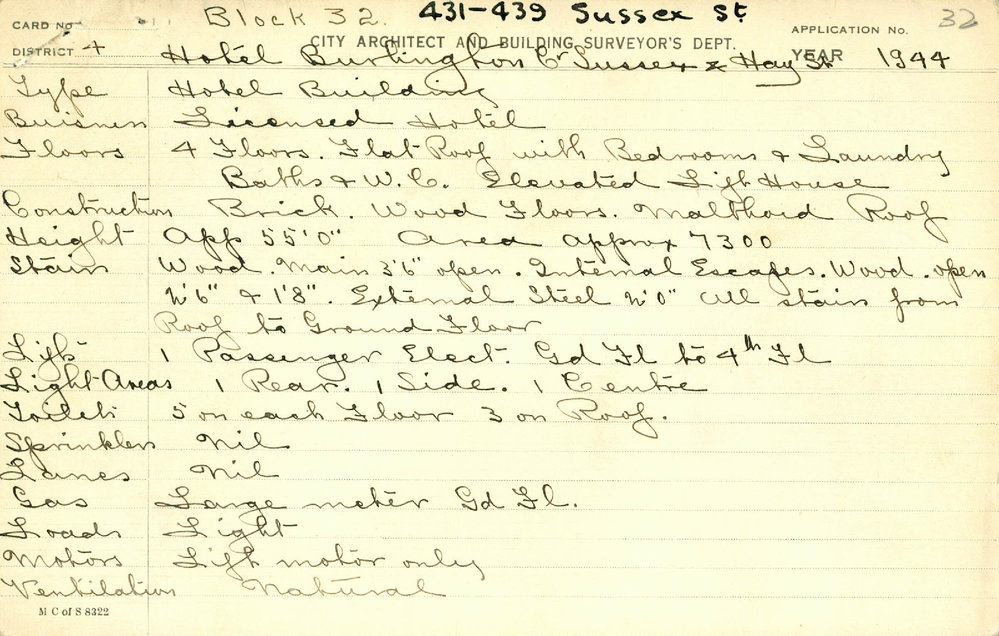 CARD No Block 32. 431-439 Sussex St. APPLICATION No. 32
DISTRICT 4 CITY ARCHITECT AND BUILDING SURVEYOR'S DEPT. YEAR 1944
Hotel Burlington Cr Sussex & Hay St
Type Hotel Building
Buisness Licensed Hotel
Floors 4 Floors. Flat Roof with Bedrooms & Laundry
Baths & W.C. Elevated Lift House
Construction Brick. Wood Floors. Malthoid Roof
Height App 55'0" Area approx 7300
Stairs Wood. Main 3'6" open. Internal Escapes. Wood. open
2'6" & 1'8". External Steel 2'0" All stairs from
Roof to Ground Floor
Lift 1 Passenger Elect. Gd Fl to 4th Fl
Light Areas 1 Rear. 1 Side. 1 Centre
Toilets 5 on each Floor 3 on Roof.
Sprinklers Nil
Lanes Nil
Gas Large meter Gd Fl.
Loads Light
Motors Lift motor only
Ventilation Natural
M C of S 8322